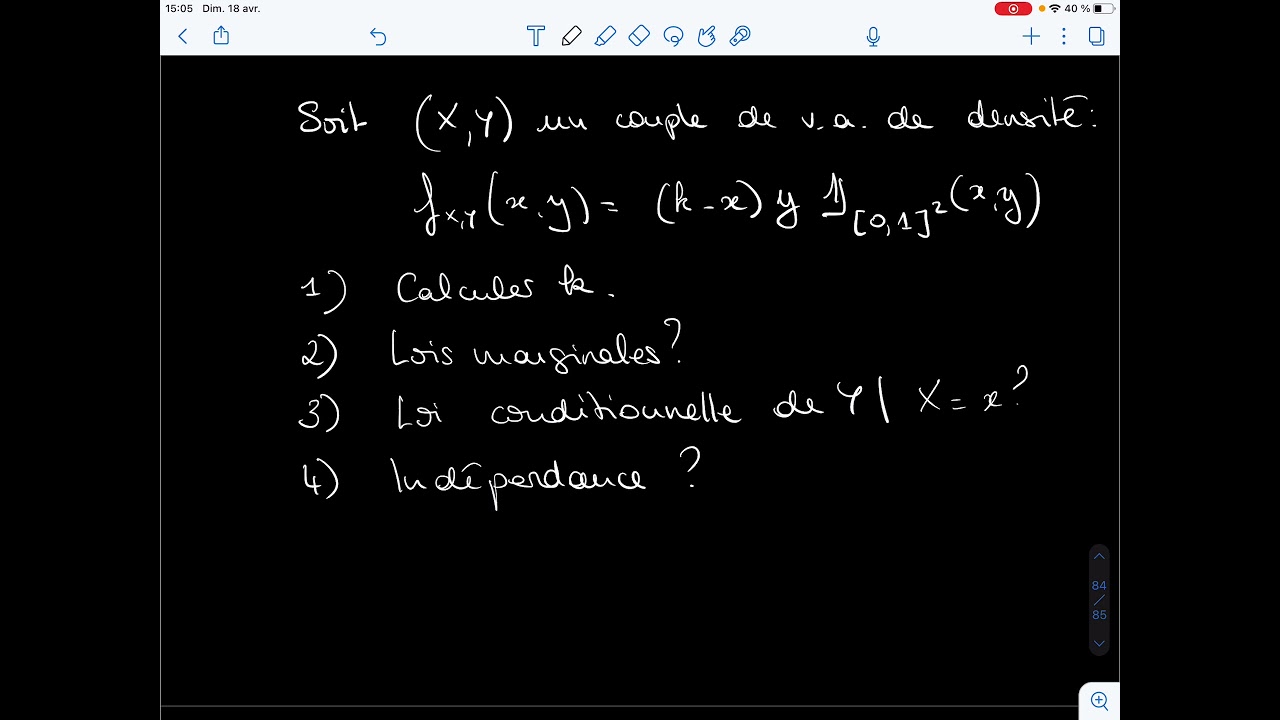 15:05 Dim. 18 avr. 40 %
T
Soit (X,Y) un couple de v.a. de densité:
f_{X,Y}(x,y) = (k-x) y 𝟙_{[0,1]²}(x,y)
1) Calculer k.
2) Lois marginales?
3) Loi conditionnelle de Y | X = x?
4) Indépendance ?
84
/
85